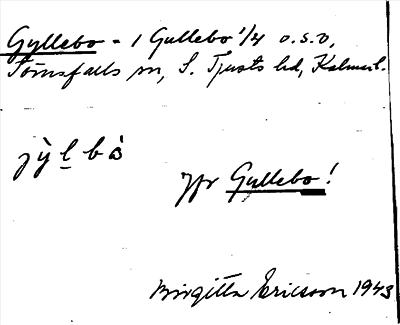 Gyllebo - 1 Gullebo 1/4 o.s.v,
Törnsfalls sn, S. Tjusts hd, Kalmar l.
jỳl̲bò
Jfr Gullebo!
Birgitta Ericsson 1943